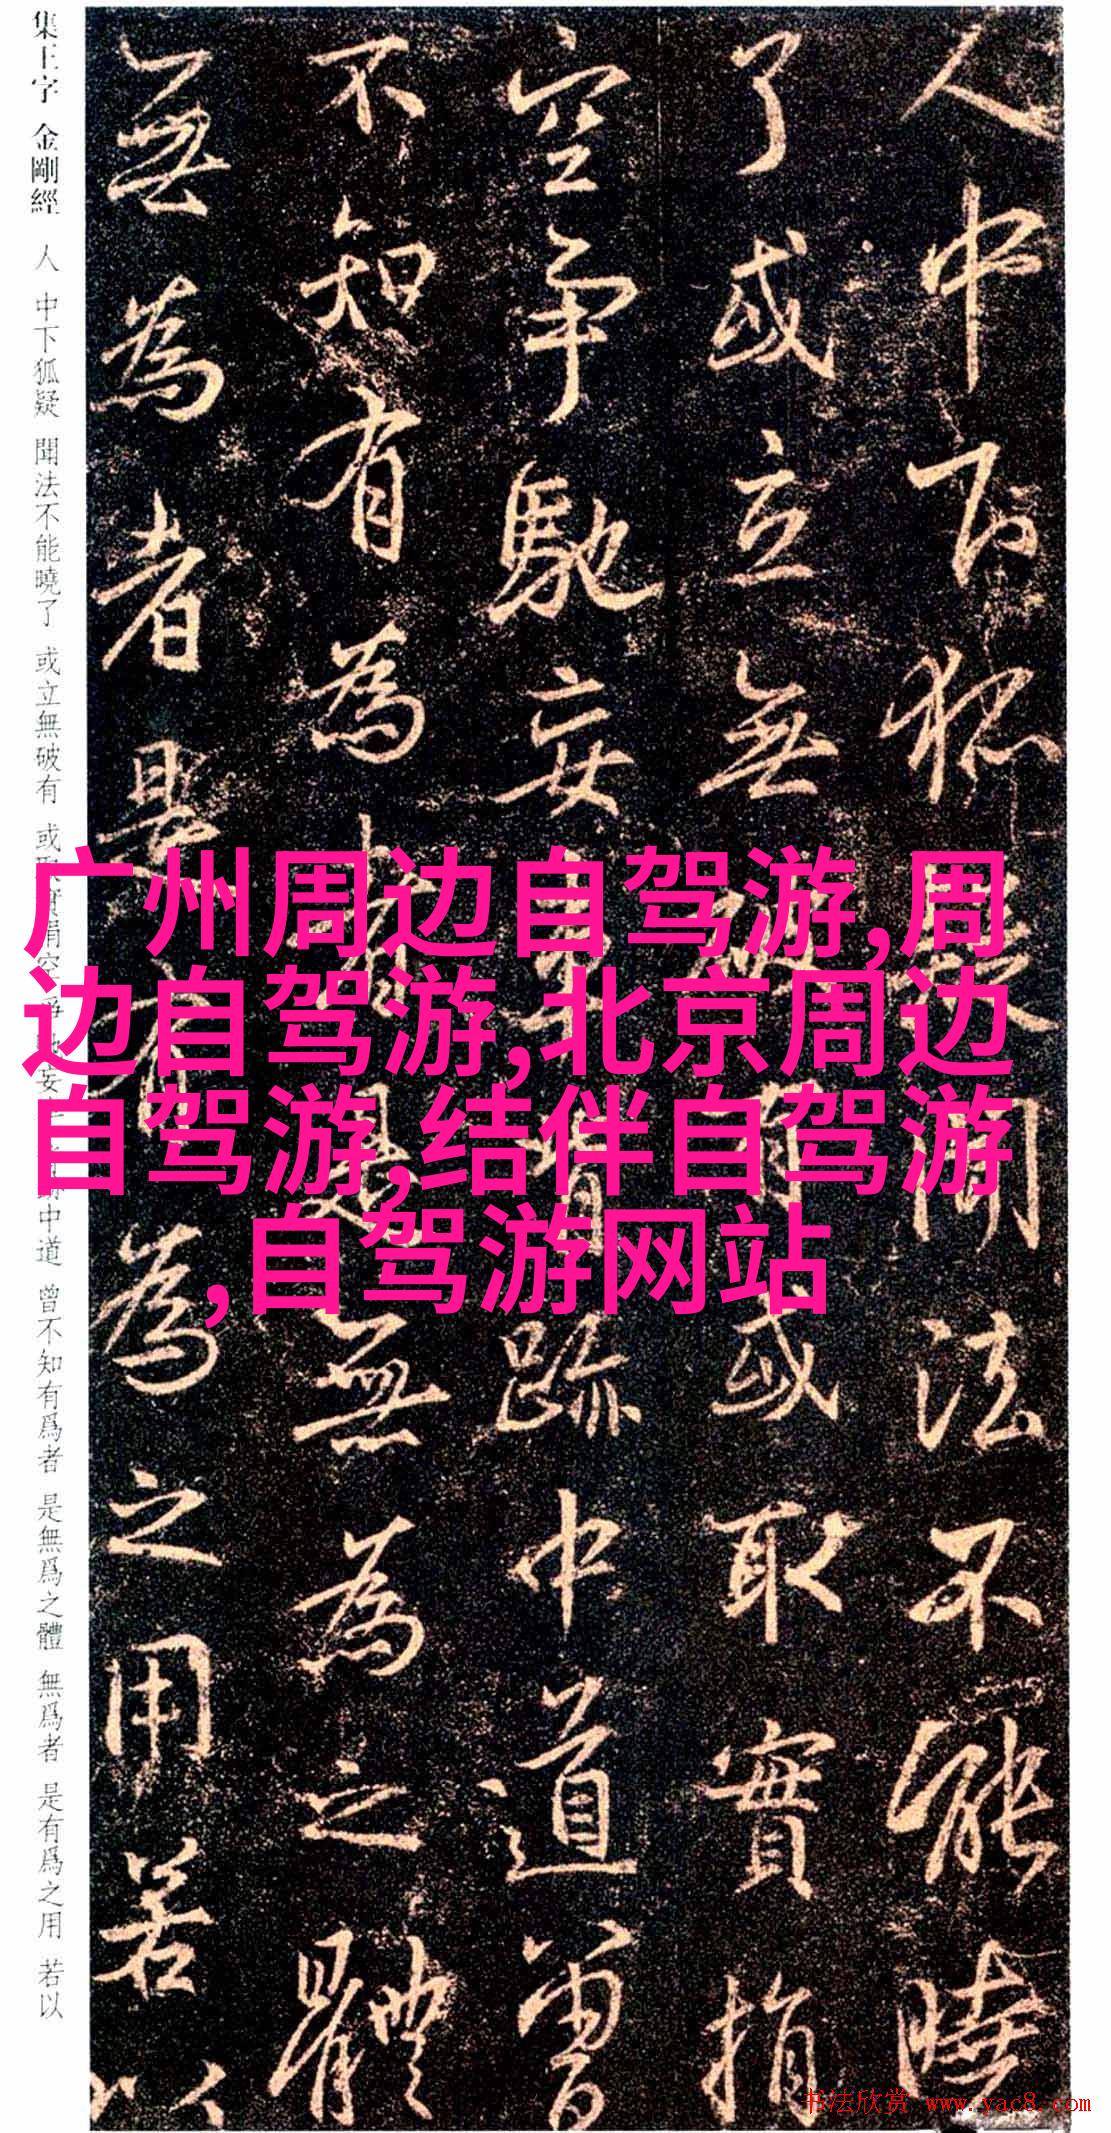 人中下狐疑聞法不能曉
了或立無破有或取實捐
空爭馳妄皆跡中道曾
不知有為者是無為之體
無為者是有為之用若以
集王字 金剛經 人 中下狐疑 聞法不能曉了 或立無破有 或取實捐空爭妄中道 曾不知有爲者 是無爲之體 無爲者 是有爲之用 若以
广州周边自驾游,周
边自驾游,北京周边
自驾游,结伴自驾游
,自驾游网站
书法欣赏 www.yac8.com